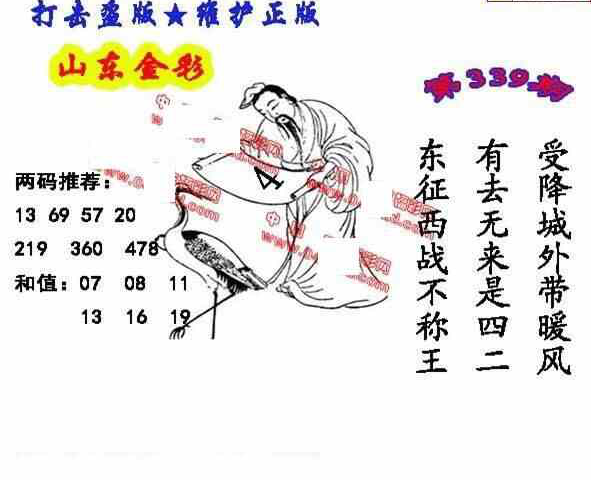 打击盗版★维护正版
山东金彩
第339期
两码推荐：
13 69 57 20
219 360 478
和值：07 08 11
13 16 19
4
受降城外带暖风
有去无来是四二
东征西战不称王